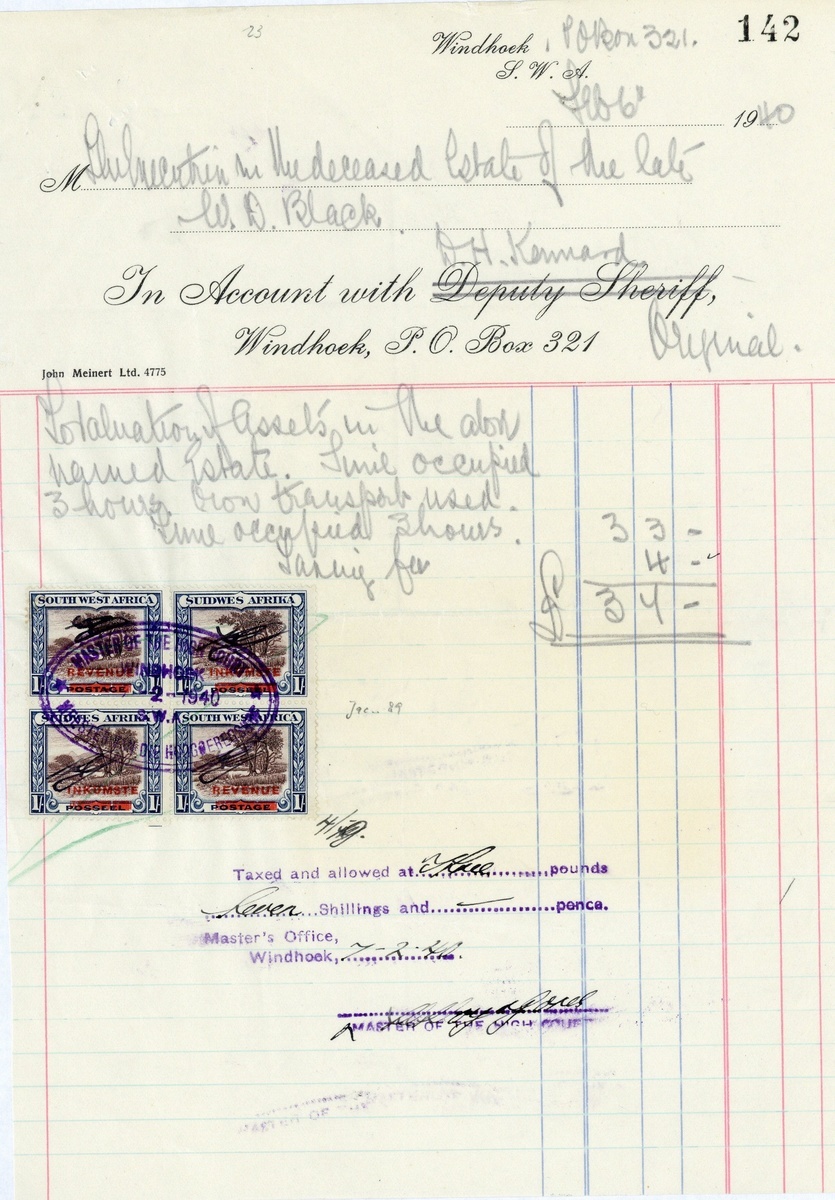 23
Windhoek, P O Box 321. 142
S. W. A.
Feb 6" 1940
M in the deceased Estate of the late
W. D. Black.
D H. Kennard
In Account with Deputy Sheriff,
Windhoek, P. O. Box 321 Original.
John Meinert Ltd. 4775
To Valuation of Assets in the abov
named Estate. Time occupied
3 hours. Own transport used.
Time occupied 3 hours. 3 3 -
Taxing fee 4 -
3 7 -
SOUTH WEST AFRICA SUIDWES AFRIKA
REVENUE INKOMSTE
1/- POSTAGE 1/- 1/- POSSEEL 1/-
SUIDWES AFRIKA SOUTH WEST AFRICA
INKOMSTE REVENUE
1/- POSSEEL 1/- 1/- POSTAGE 1/-
MASTER OF THE HIGH COURT
WINDHOEK
2-1940
S.W.A.
MEESTER VAN DIE HOOGGEREGSHOF
Taxed and allowed at Three pounds
Seven Shillings and — pence.
Master's Office,
Windhoek, 7-2-40.
MASTER OF THE HIGH COURT
MASTER OF THE